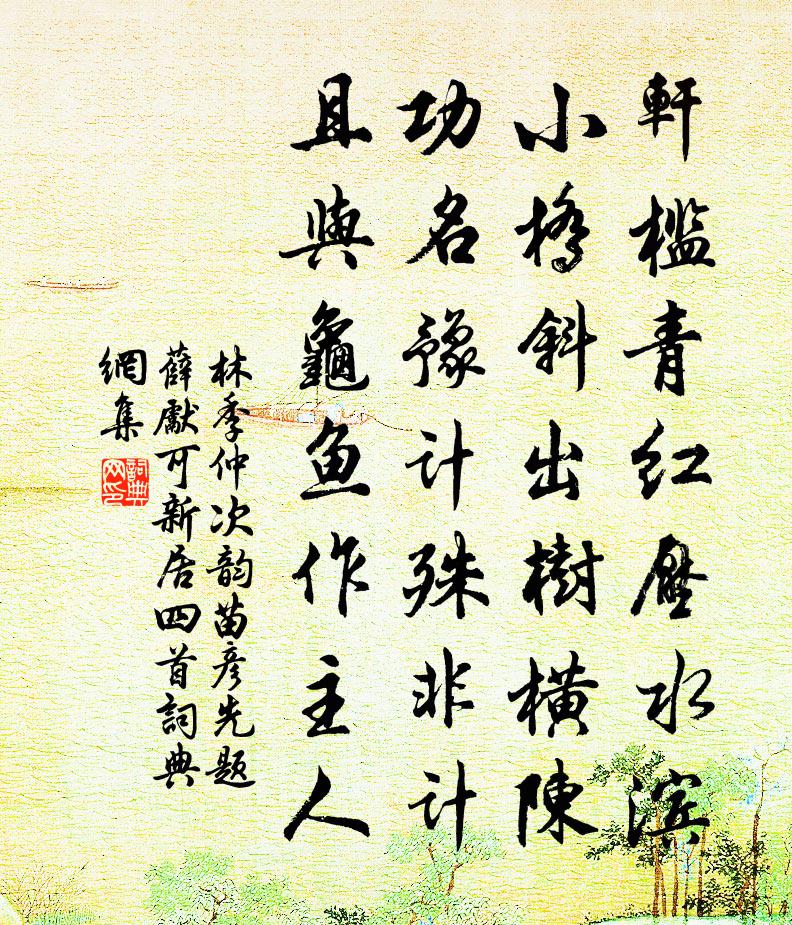 軒檻青红壓水滨
小橋斜出樹橫陳
功名豫计殊非计
且與龜鱼作主人
林季仲次韵苗彦先题
薛獻可新居四首詞典
網集
詞典网印